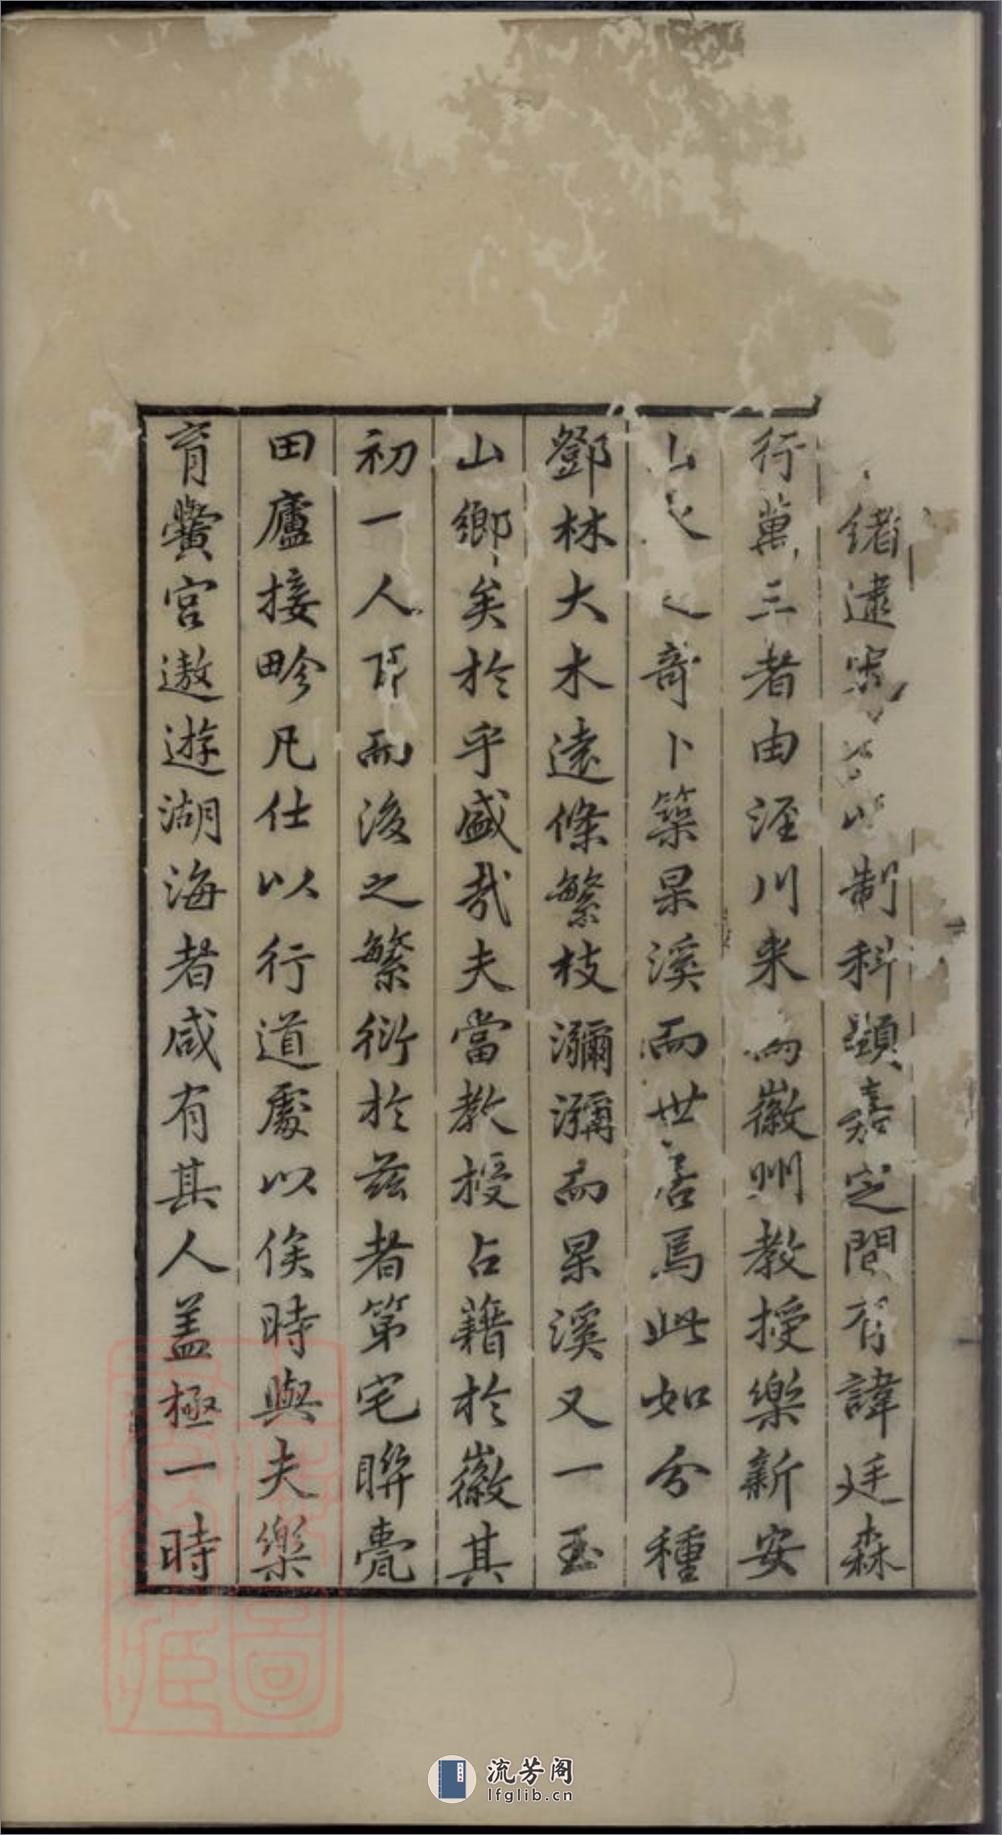 緒逮宋
以制科顯嘉定間有諱廷森
行萬三者由涇川来而徽州教授樂新安
山
之奇卜築杲溪而世居焉此如分種
鄧林大木遠條繁枝瀰瀰而杲溪又一玉
山鄉矣於乎盛哉夫當教授占籍於徽其
初一人耳而後之繁衍於兹者第宅聨甍
田廬接畛凡仕以行道處以俟時與夫樂
育黌宫遨遊湖海者咸有其人盖極一時
流芳阁
lfglib.cn